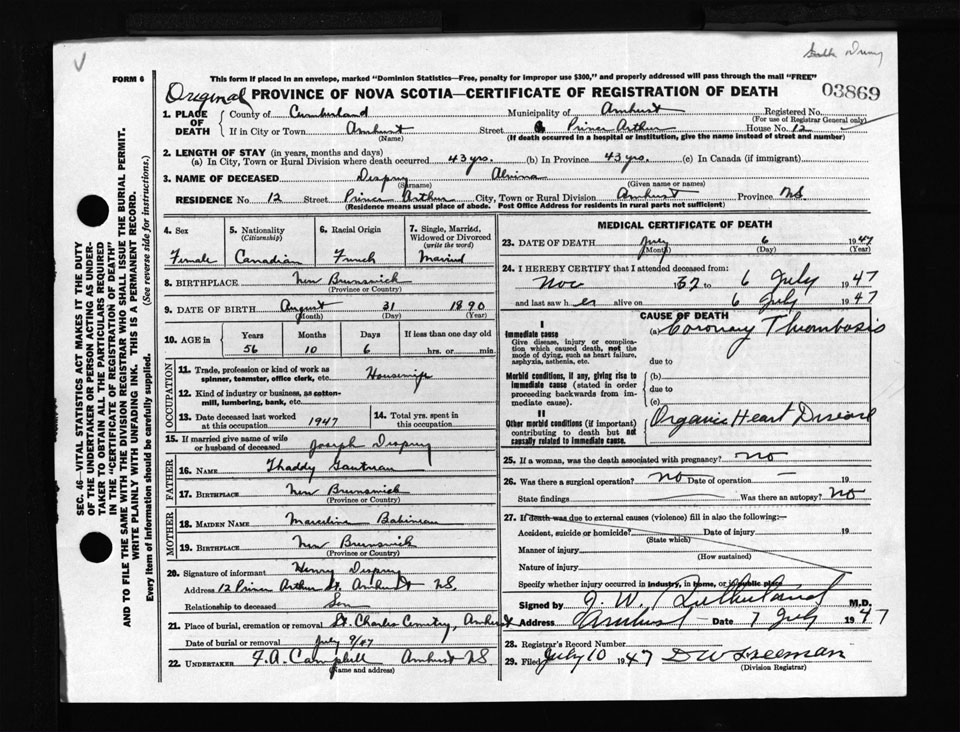 FORM 6
This form if placed in an envelope, marked "Dominion Statistics—Free, penalty for improper use $300," and properly addressed will pass through the mail "FREE"
Original PROVINCE OF NOVA SCOTIA—CERTIFICATE OF REGISTRATION OF DEATH 03869
1. PLACE OF DEATH { County of Cumberland Municipality of Amherst Registered No.
(For use of Registrar General only)
If in City or Town Amherst Street Prince Arthur House No. 12
(Name) (If death occurred in a hospital or institution, give the name instead of street and number)
2. LENGTH OF STAY (in years, months and days)
(a) In City, Town or Rural Division where death occurred 43 yrs. (b) In Province 43 yrs. (c) In Canada (if immigrant)
3. NAME OF DECEASED Alvina
(Surname) (Given name or names)
RESIDENCE No 12 Street Prince Arthur City, Town or Rural Division Amherst Province NS
(Residence means usual place of abode. Post Office Address for residents in rural parts not sufficient)
4. Sex 5. Nationality (Citizenship) 6. Racial Origin 7. Single, Married, Widowed or Divorced (write the word)
Female Canadian French Married
8. BIRTHPLACE New Brunswick
(Province or Country)
9. DATE OF BIRTH August 31 1890
(Month) (Day) (Year)
10. AGE in { Years Months Days If less than one day old
56 10 6 hrs. or min.
OCCUPATION
11. Trade, profession or kind of work as spinner, teamster, office clerk, etc. Housewife
12. Kind of industry or business, as cotton-mill, lumbering, bank, etc.
13. Date deceased last worked at this occupation 1947 14. Total yrs. spent in this occupation
15. If married give name of wife or husband of deceased Joseph
FATHER
16. NAME Thaddy
17. BIRTHPLACE New Brunswick
(Province or Country)
MOTHER
18. MAIDEN NAME Marceline Babineau
19. BIRTHPLACE New Brunswick
(Province or Country)
20. Signature of informant Henry
Address 12 Prince Arthur St. Amherst NS.
Relationship to deceased Son
21. Place of burial, cremation or removal St. Charles Cemetry, Amherst
Date of burial or removal July 9/47
22. UNDERTAKER F. A. Campbell Amherst NS
(Name and address)
MEDICAL CERTIFICATE OF DEATH
23. DATE OF DEATH July 6 1947
(Month) (Day) (Year)
24. I HEREBY CERTIFY that I attended deceased from:
Nov 1932 to 6 July 1947
and last saw her alive on 6 July 1947
CAUSE OF DEATH
I
Immediate cause
Give disease, injury or complication which caused death, not the mode of dying, such as heart failure, asphyxia, asthenia, etc.
(a) Coronary Thrombosis
due to
Morbid conditions, if any, giving rise to immediate cause (stated in order proceeding backwards from immediate cause).
(b)
due to
(c)
II
Other morbid conditions (if important) contributing to death but not causally related to immediate cause.
Organic Heart Disease
25. If a woman, was the death associated with pregnancy? no
26. Was there a surgical operation? no Date of operation — 19
State findings Was there an autopsy? no
27. If death was due to external causes (violence) fill in also the following:—
Accident, suicide or homicide? Date of injury 19
(State which)
Manner of injury
(How sustained)
Nature of injury
Specify whether injury occurred in industry, in home, or in public place
Signed by J. W. Sutherland M.D.
Address Amherst Date 7 July 1947
28. Registrar's Record Number
29. Filed July 10 1947 D W Freeman
(Division Registrar)
SEC. 46—VITAL STATISTICS ACT MAKES IT THE DUTY
OF THE UNDERTAKER OR PERSON ACTING AS UNDER-
TAKER TO OBTAIN ALL THE PARTICULARS REQUIRED
IN THE "CERTIFICATE OF REGISTRATION OF DEATH"
AND TO FILE THE SAME WITH THE DIVISION REGISTRAR WHO SHALL ISSUE THE BURIAL PERMIT.
WRITE PLAINLY WITH UNFADING INK. THIS IS A PERMANENT RECORD.
Every item of information should be carefully supplied. (See reverse side for instructions.)